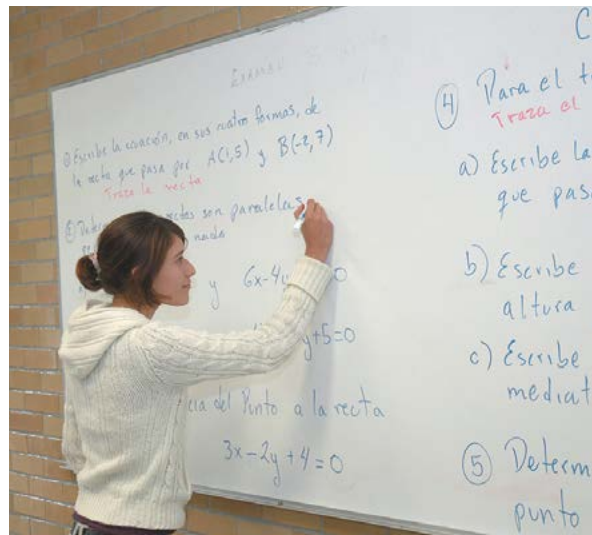 Examen
① Escribe la ecuación, en sus cuatro formas, de
la recta que pasa por A(1,5) y B(-2,7)
Traza la recta
rectas son paralelas
nada
y 6x-4y 0
y+5=0
cia del Punto a la recta
3x-2y+4=0
C
④ Para el t
Traza el
a) Escribe la
que pas
b) Escribe
altura
c) Escribe
mediat
⑤ Determ
punto